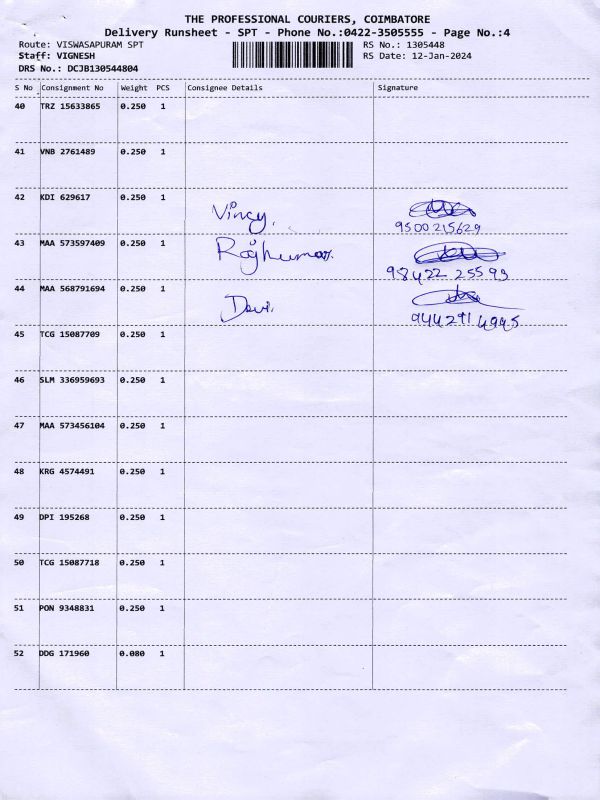 THE PROFESSIONAL COURIERS, COIMBATORE
Delivery Runsheet - SPT - Phone No.:0422-3505555 - Page No.:4
Route: VISWASAPURAM SPT RS No.: 1305448
Staff: VIGNESH RS Date: 12-Jan-2024
DRS No.: DCJB130544804
S No Consignment No Weight PCS Consignee Details Signature
40 TRZ 15633865 0.250 1
41 VNB 2761489 0.250 1
42 KDI 629617 0.250 1 Vincy.
9500215629
43 MAA 573597409 0.250 1 Rajkumar.
98422 25593
44 MAA 568791694 0.250 1 Devi.
944291 4995
45 TCG 15087709 0.250 1
46 SLM 336959693 0.250 1
47 MAA 573456104 0.250 1
48 KRG 4574491 0.250 1
49 DPI 195268 0.250 1
50 TCG 15087718 0.250 1
51 PON 9348831 0.250 1
52 DDG 171960 0.080 1